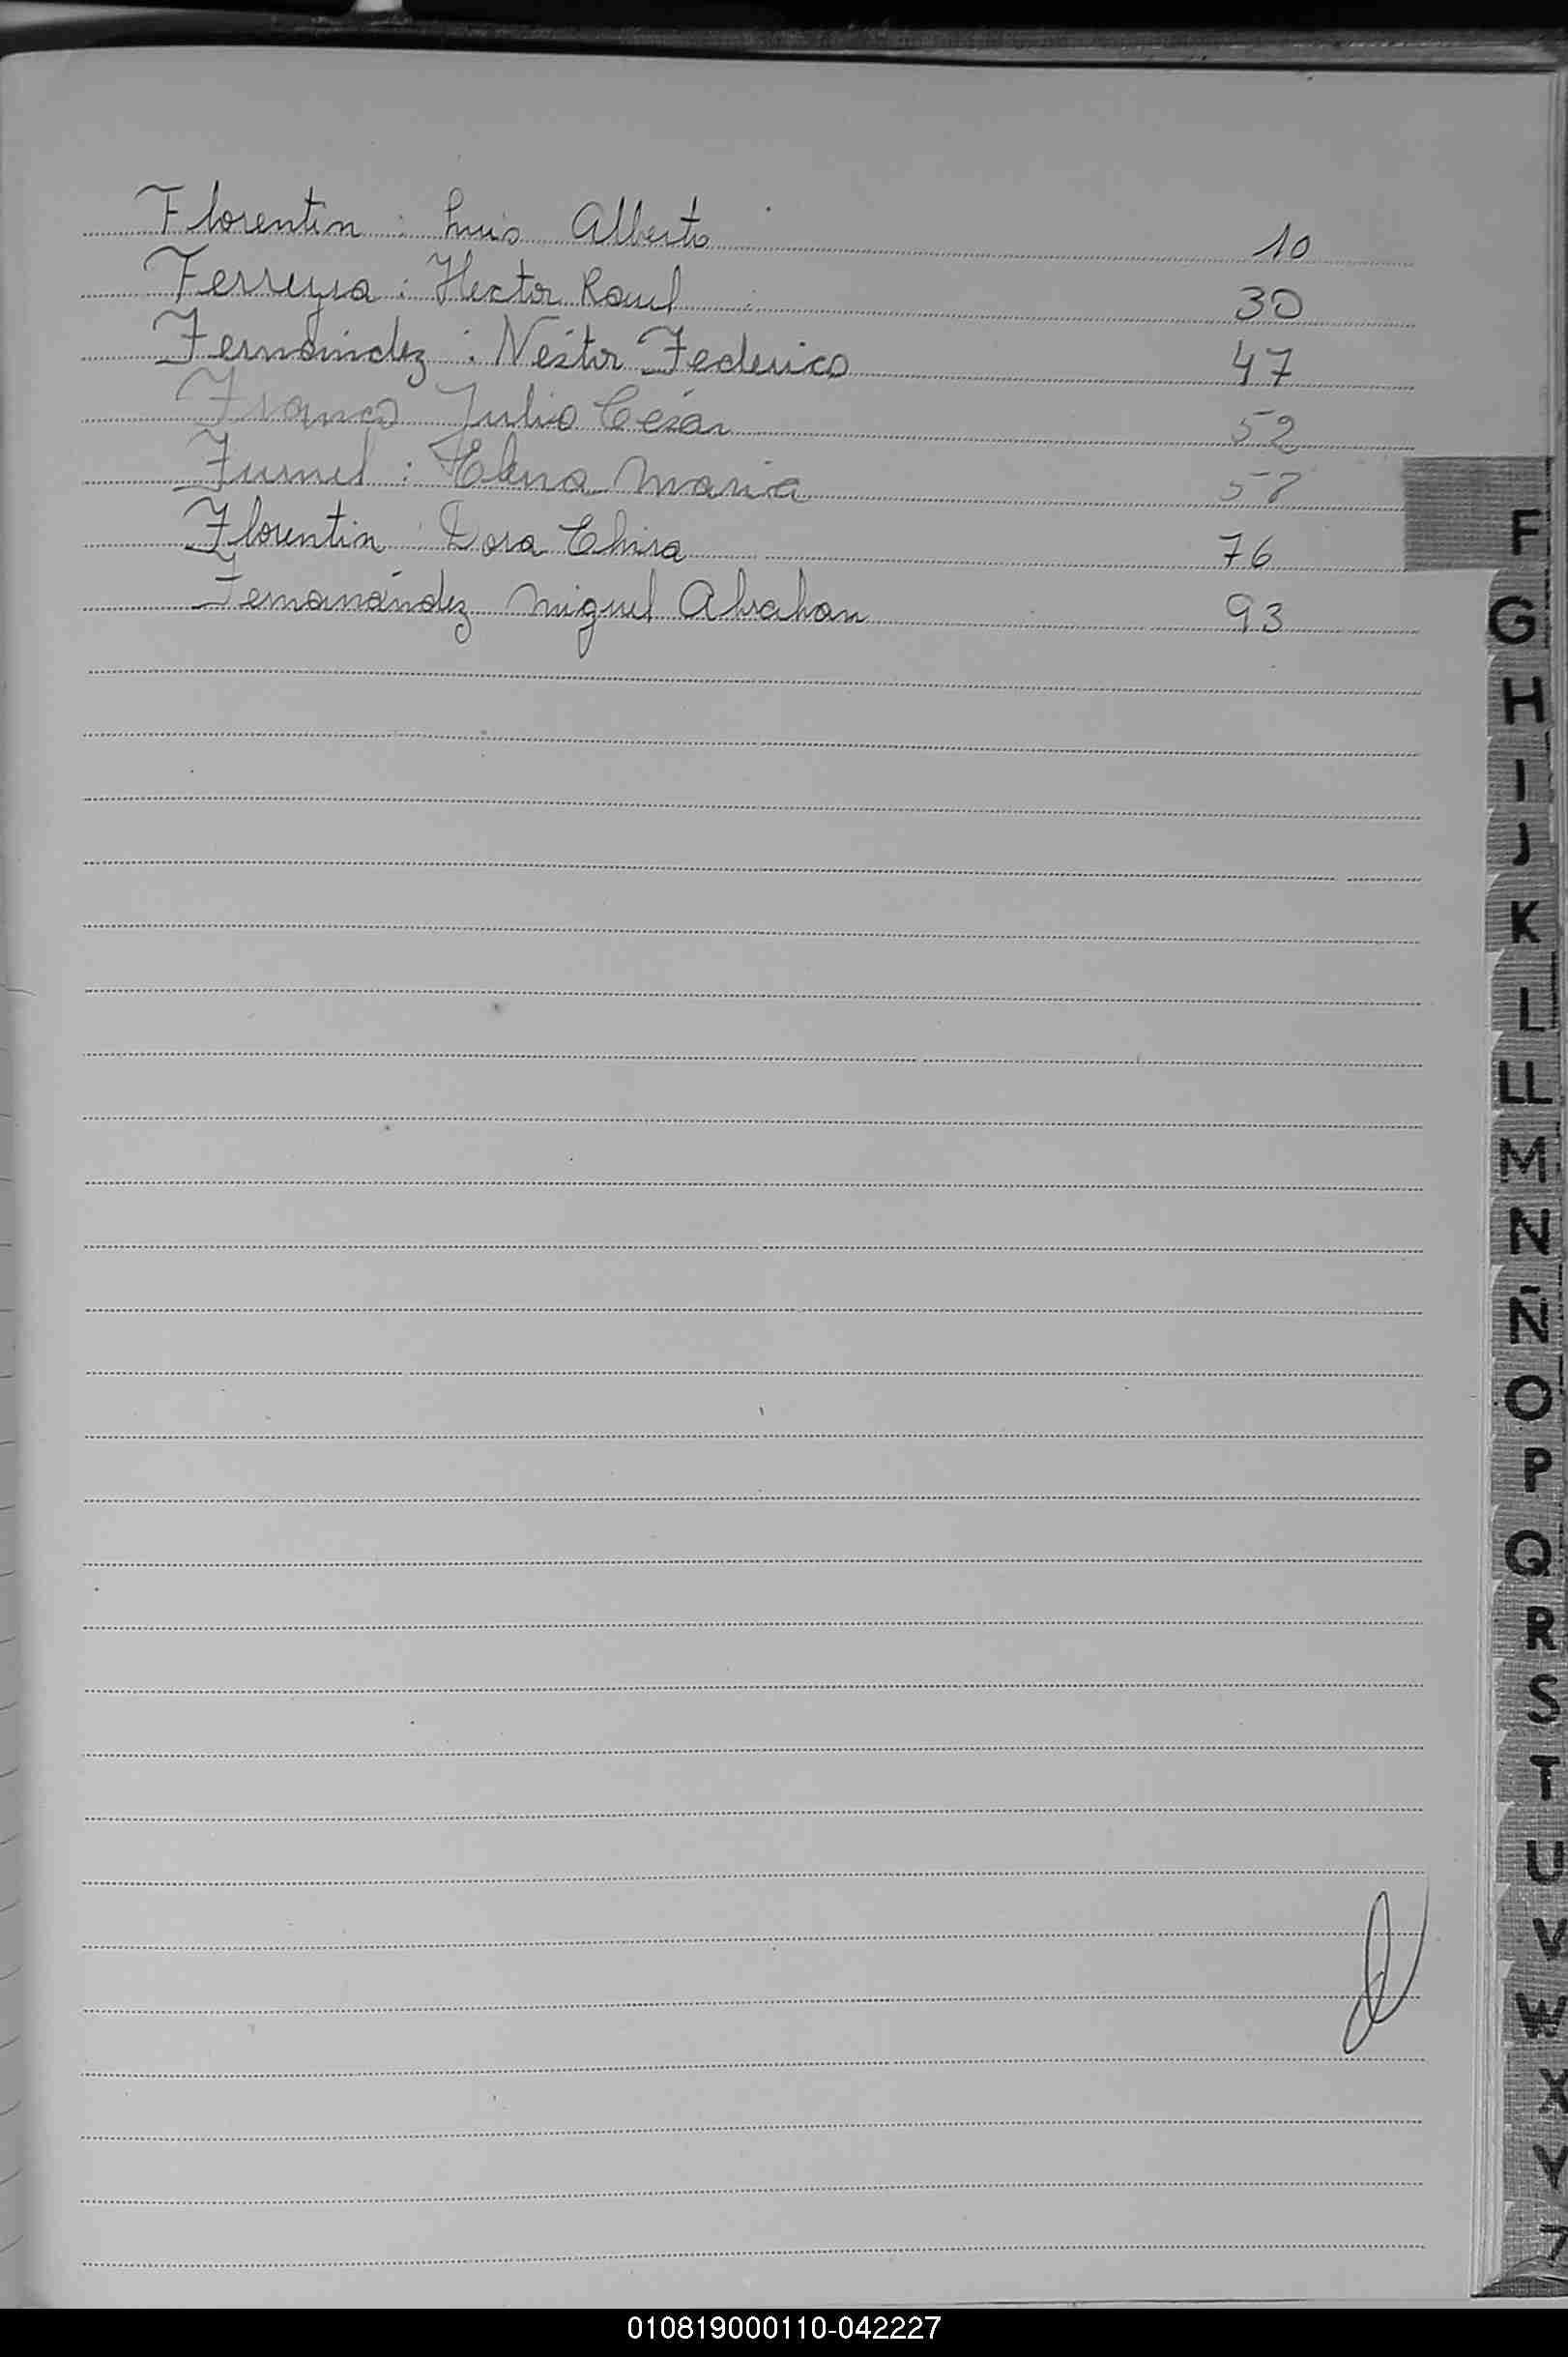 Florentin : Luis Alberto 10
Ferreyra : Hector Raul 30
Fernández : Nestor Federico 47
Franco Julio César 52
Fumel : Elena Maria 57
Florentin : Dora Elvira 76
Fernanández Miguel Abrahan 93
F
G
H
I
J
K
L
LL
M
N
Ñ
O
P
Q
R
S
T
U
V
W
X
Y
Z
010819000110-042227